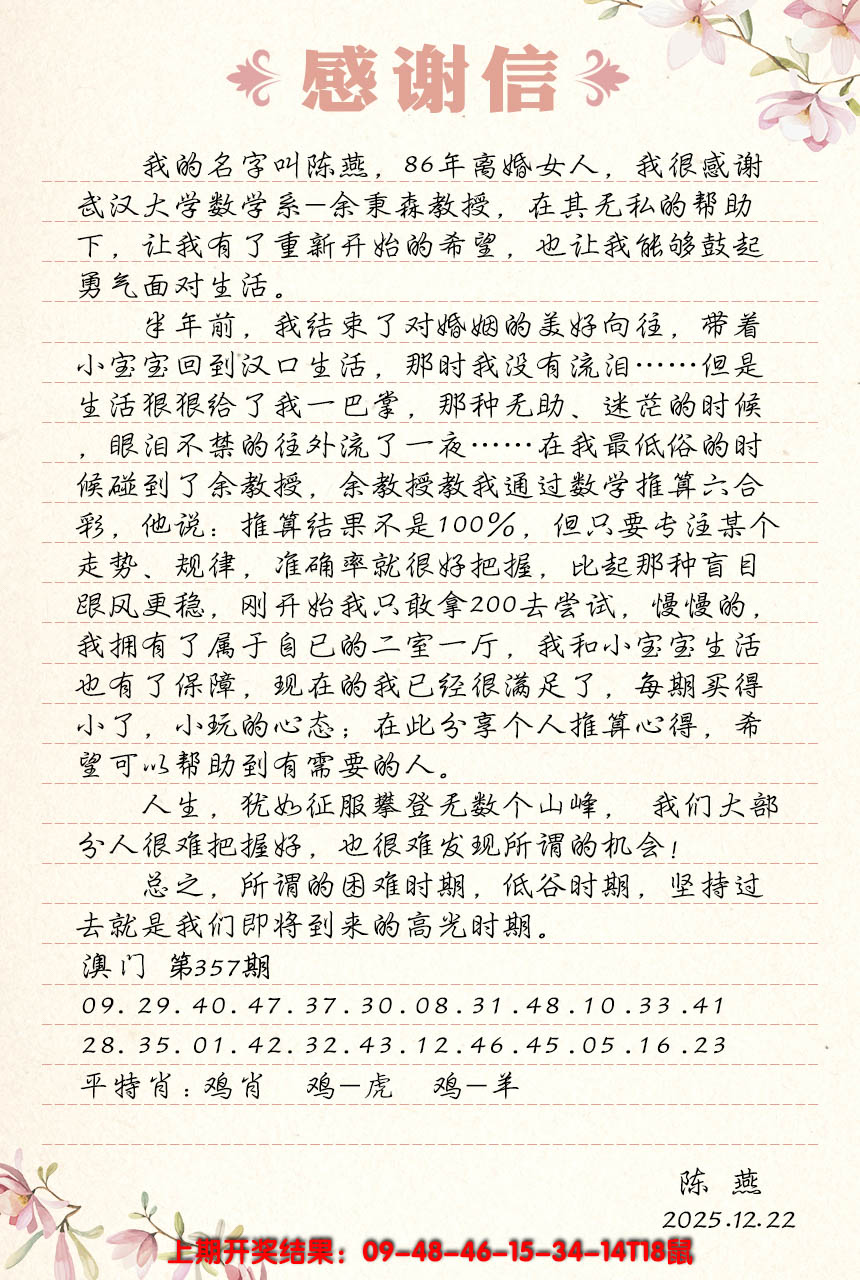 感谢信
我的名字叫陈燕，86年离婚女人，我很感谢
武汉大学数学系—余秉森教授，在其无私的帮助
下，让我有了重新开始的希望，也让我能够鼓起
勇气面对生活。
半年前，我结束了对婚姻的美好向往，带着
小宝宝回到汉口生活，那时我没有流泪……但是
生活狠狠给了我一巴掌，那种无助、迷茫的时候
，眼泪不禁的往外流了一夜……在我最低俗的时
候碰到了余教授，余教授教我通过数学推算六合
彩，他说：推算结果不是100%，但只要专注某个
走势、规律，准确率就很好把握，比起那种盲目
跟风更稳，刚开始我只敢拿200去尝试，慢慢的，
我拥有了属于自已的二室一厅，我和小宝宝生活
也有了保障，现在的我已经很满足了，每期买得
小了，小玩的心态；在此分享个人推算心得，希
望可以帮助到有需要的人。
人生，犹如征服攀登无数个山峰， 我们大部
分人很难把握好，也很难发现所谓的机会！
总之，所谓的困难时期，低谷时期，坚持过
去就是我们即将到来的高光时期。
澳门 第357期
09.29.40.47.37.30.08.31.48.10.33.41
28.35.01.42.32.43.12.46.45.05.16.23
平特肖：鸡肖 鸡—虎 鸡—羊
陈 燕
2025.12.22
上期开奖结果：09-48-46-15-34-14T18鼠